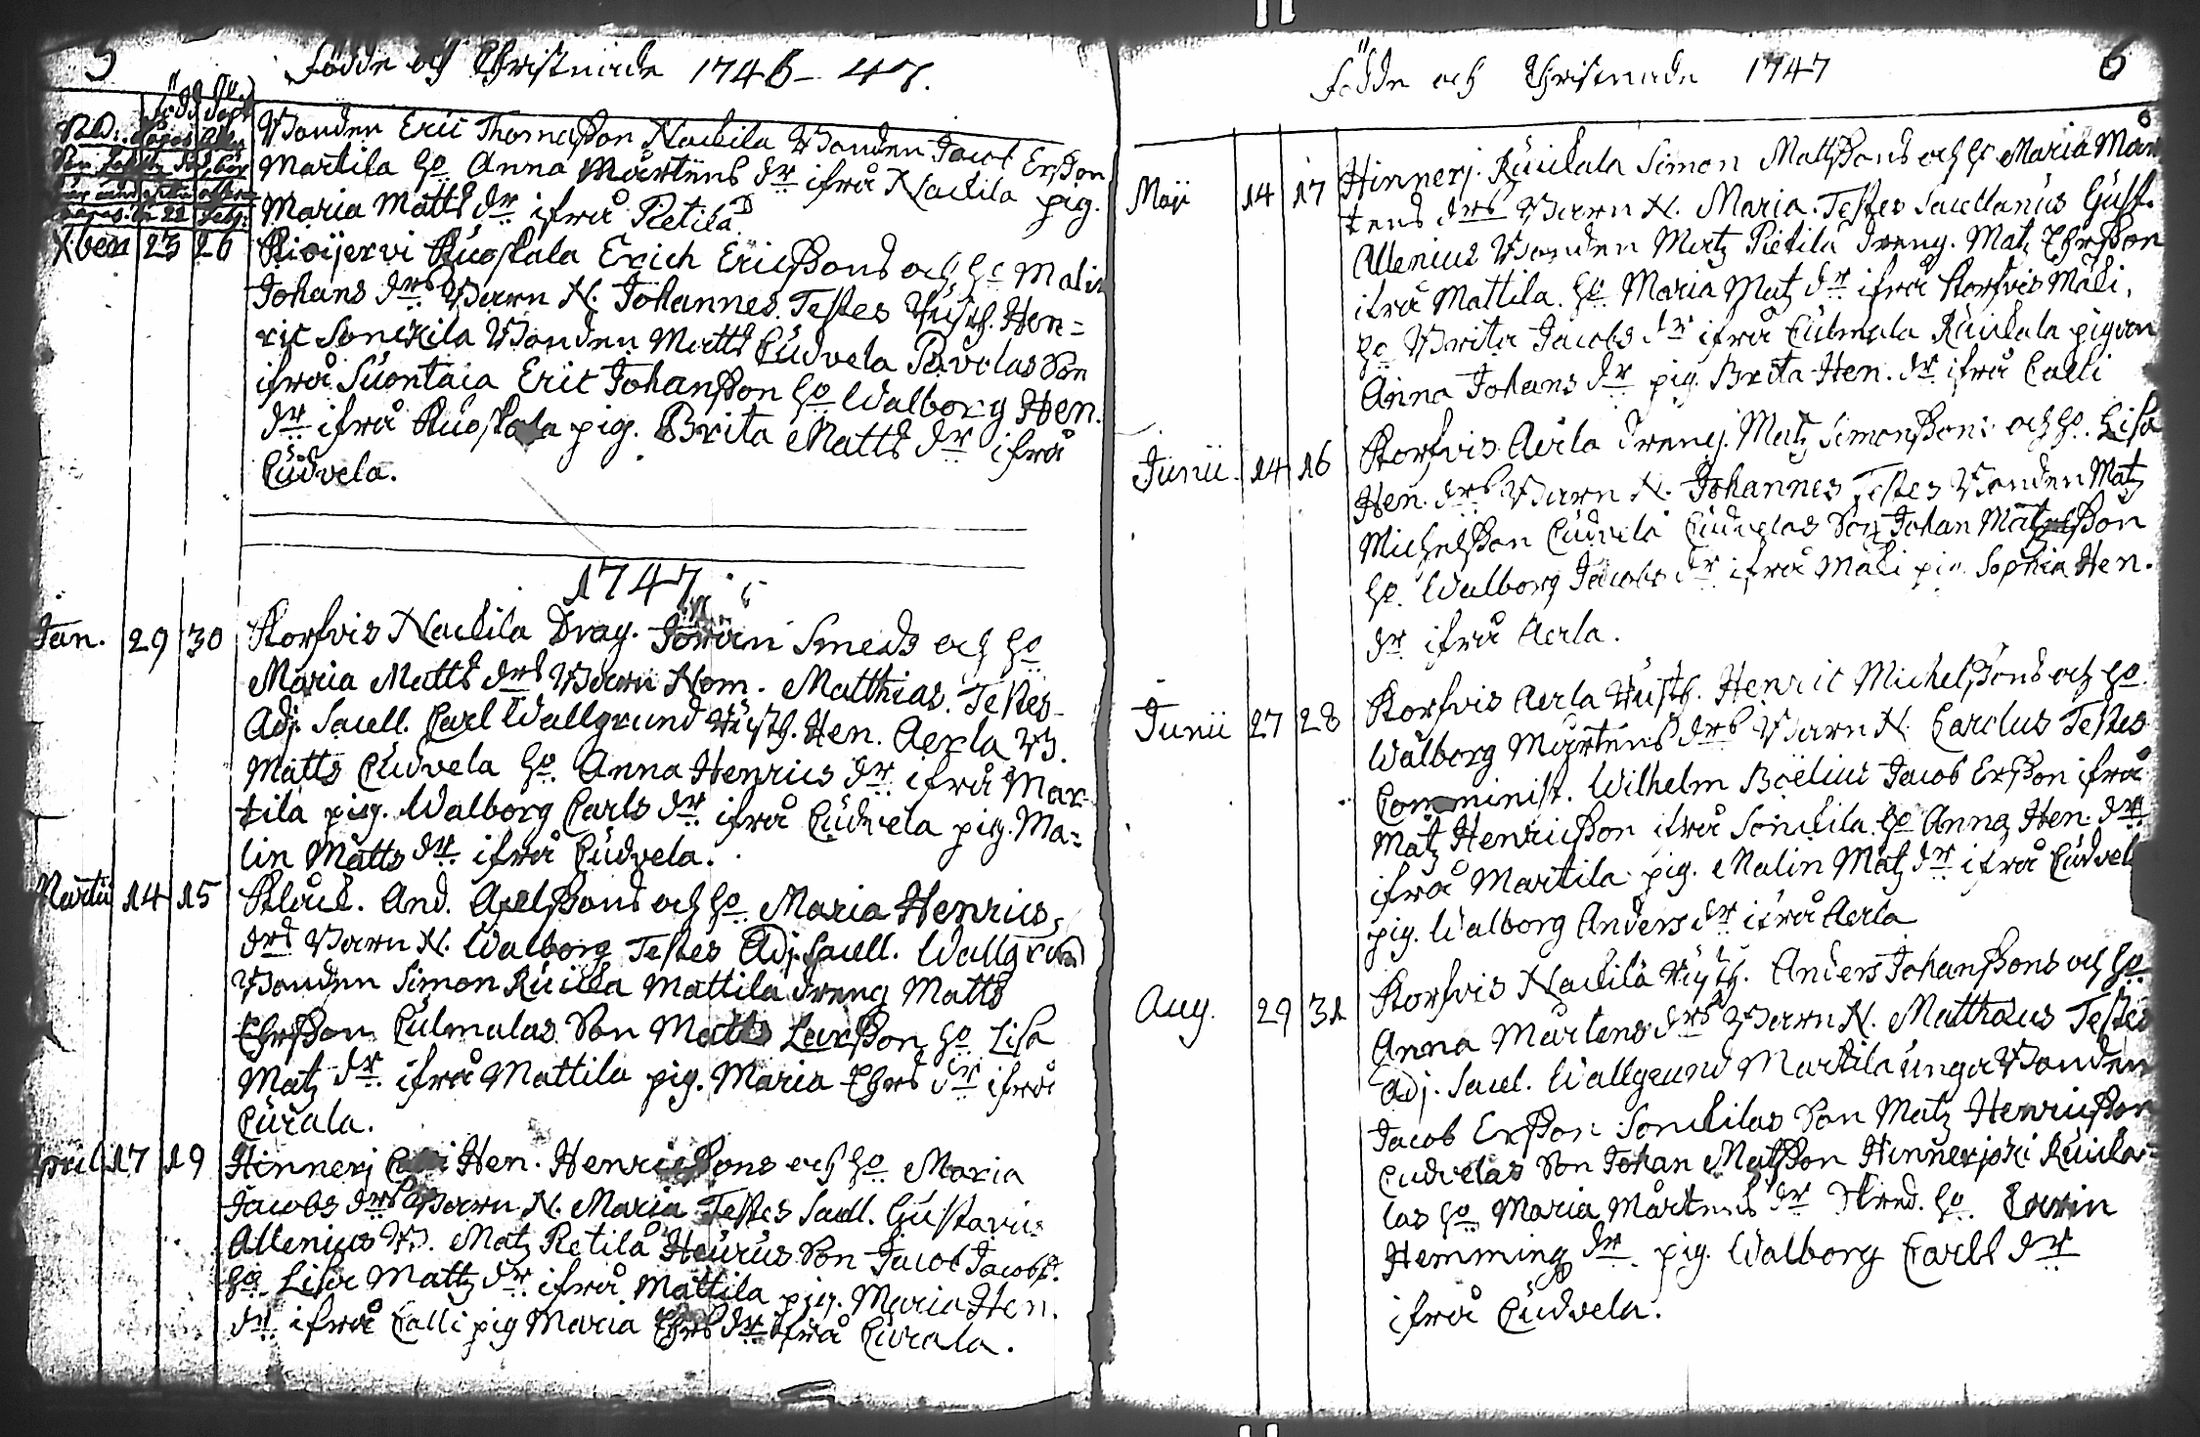 5
Födde och Christnade 1746-47.
Född Döpt
Bonden Eric Thomasson Nackila Bonden Jacob Ersson
Martila ho. Anna Mårtens dr ifrå Nackila pig.
Maria Matts dr ifrå Pietilä
Xbem 25 26 Kioijervi Ruoskala Erich Ericssons och ho Malin
Johans drs Barn N. Johannes. Testes Husb. Hen=
ric Sonckila Bonden Matts Cudvela Pavolas Son
ifrå Suontaca Eric Johansson ho Walborg Hen.
dr ifrå Ruoskala pig. Brita Matts dr ifrå
Cudvela.
1747
Jan. 29 30 Korfvis Nackila Drag. Jöran Smeds och ho
Maria Matts drs Barn Nom. Matthias. Testes
Adj. Sacell. Carl Wallgrund Husb. Hen. Aerla B.
Matts Cudvela ho. Anna Henrics dr ifrå Mar-
tila pig. Walborg Carls dr ifrå Cudvela pig. Ma=
lin Matts dr ifrå Cudvela.
Martii 14 15 Klåck. And. Axelssons och ho Maria Henrics
drs Barn N. Walborg Testes Adj. Sacell. Wallgrund
Bonden Simon Mattila dreng Matts
Ehrsson Culmalas Son Matts Larsson ho Lisa
Matz dr. ifrå Mattila pig. Maria Ehrs dr ifrå
Curala.
April 17 19 Hinnerj Hen. Henricssons och ho Maria
Jacobs drs Barn N. Maria Testes Sacell. Gustavus
Allenius B. Matz Pietilä Heurus Son Jacob Jacobs.
ho. Lisa Mattz dr. ifrå Mattila pig. Maria Hen.
dr. ifrå Calli pig Maria Ehrs dr ifrå Curala.
Födde och Christnade 1747
6
Maji 14 17 Hinnerj. Ruickala Simon Matssons och ho Maria Mår
tens drs Barn N. Maria. Testes Sacellanus Gust.
Allenius Bonden Matz Pietilä dreng. Matz Ehrsson
ifrå Mattila. ho Maria Matz dr ifrå Korfvis Mäki,
ho Brita Jacobs dr ifrå Culmala Ruickala pigan
Anna Johans dr pig. Brita Hen. dr ifrå Calli
Junii 14 16 Korfvis Aerla dreng. Matz Simonssons och ho. Lisa
Hen. drs Barn N. Johannes Testes Bonden Matz
Michelsson Cudvela Cudvelas Son Johan Matzsson
ho. Walborg Jacobs dr ifrå Mäki pig. Sophia Hen.
dr ifrå Aerla.
Junii 27 28 Korfvis Aerla Husb. Henric Michelssons och ho
Walborg Mårtens drs Barn N. Carolus Testes
Comminist. Wilhelm Boelius Jacob Ersson ifrå
Matz Henricsson ifrå Sonckila ho Anna Hen. dr
ifrå Martila pig. Malin Matz dr ifrå Cudvel
pig. Walborg Anders dr ifrå Aerla
Aug. 29 31 Korfvis Nackila Husb. Anders Johanssons och ho
Anna Mårtens drs Barn N. Matthæus Testes
Adj. Sacel. Wallgrund Martila unga Bonden
Jacob Ersson Sonckilas Son Matz Henricsson
Cudvelas Son Johan Matsson Hinnerjoki Ruicka=
las ho Maria Mårtens dr ho. Carin
Hemming dr. pig. Walborg Carls dr
ifrå Cudvela.